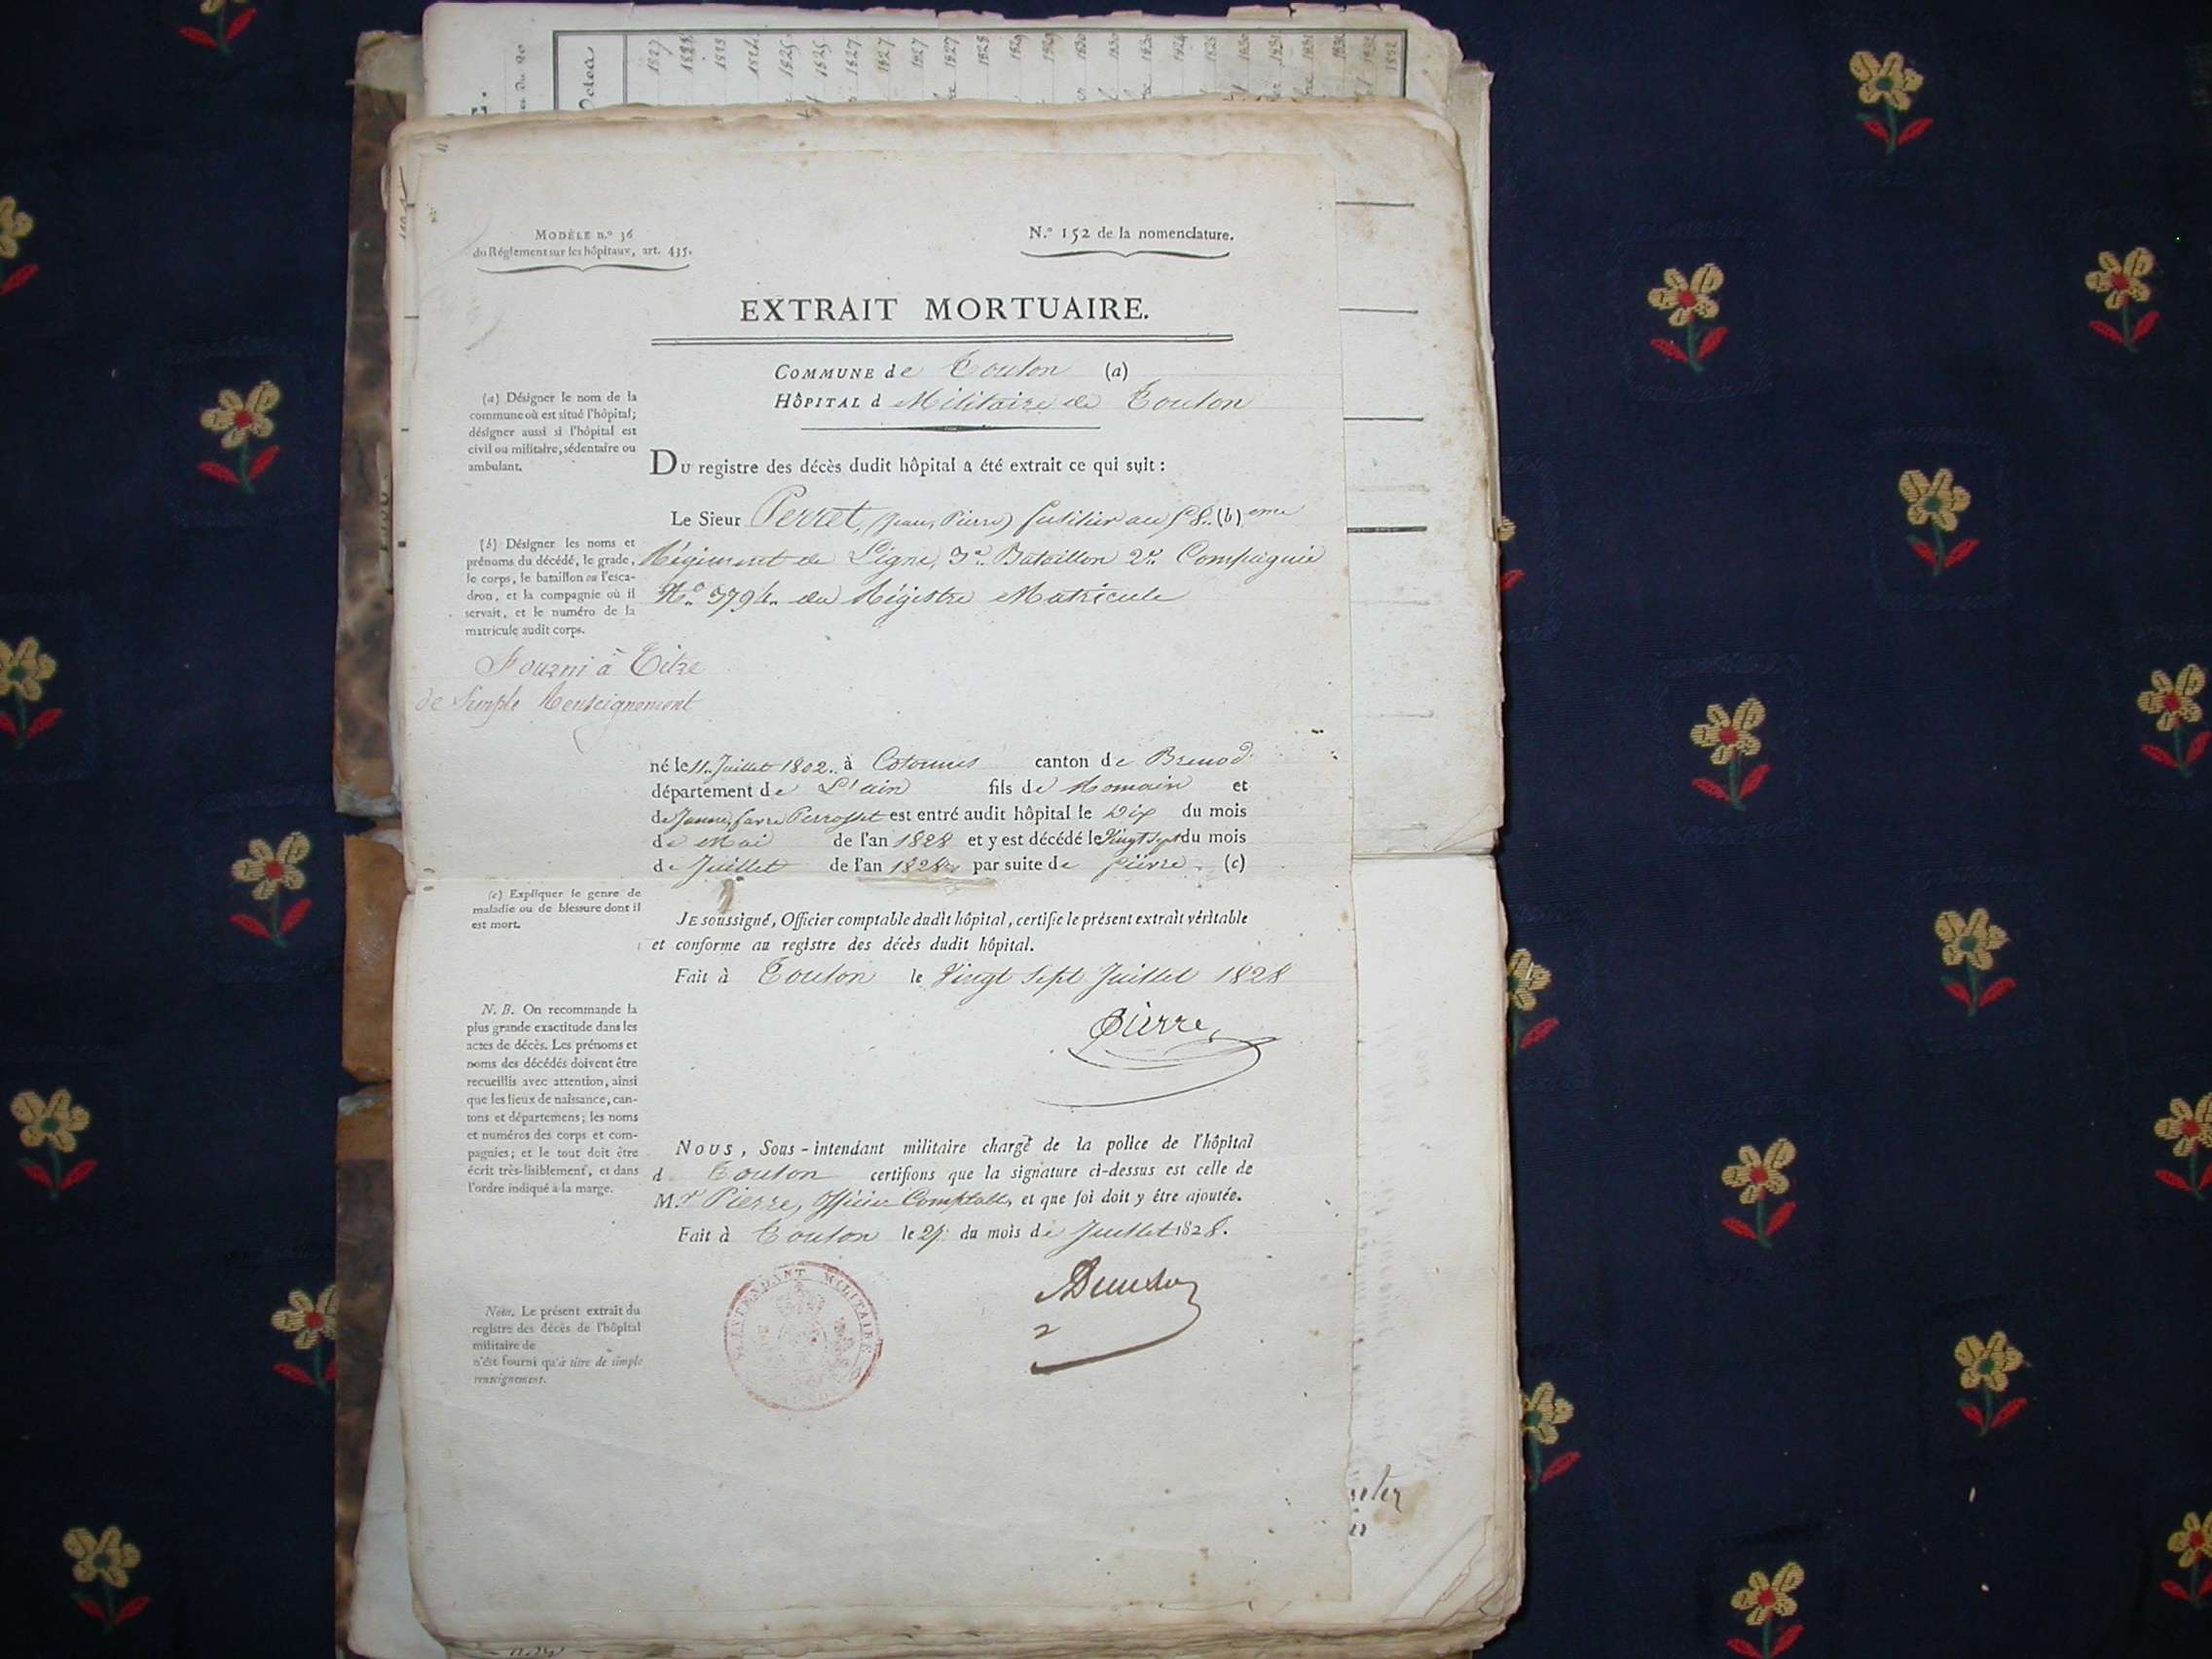 1827
1828
1823
1824
1825
1825
1827
1827
1827
1827
1828
1829
1829
1830
1830
1830
1824
1828
1830
1831
1831
1831
1832
1832
MODÈLE n.º 36
du Réglement sur les hôpitaux, art. 435.
N.º 152 de la nomenclature.
EXTRAIT MORTUAIRE.
COMMUNE de Toulon (a)
HÔPITAL d Militaire de Toulon
(a) Désigner le nom de la
commune où est situé l'hôpital;
désigner aussi si l'hôpital est
civil ou militaire, sédentaire ou
ambulant.
DU registre des décès dudit hôpital a été extrait ce qui suit:
Le Sieur Perret, (Jean, Pierre) fusilier au 58.. (b) eme
Régiment de Ligne, 3e Bataillon 2e Compagnie
No 3794.. du Régistre Matricule
(b) Désigner les noms et
prénoms du décédé, le grade,
le corps, le bataillon ou l'esca-
dron, et la compagnie où il
servait, et le numéro de la
matricule audit corps.
Fourni à Titre
de Simple Renseignement
né le 11.. Juillet 1802.. à canton de Brenod
département de L'ain fils de Romain et
de Jeanne, favre Perrosset est entré audit hôpital le Dix du mois
de Mai de l'an 1828 et y est décédé le Vingt sept du mois
de Juillet de l'an 1828 par suite de fièvre (c)
(c) Expliquer le genre de
maladie ou de blessure dont il
est mort.
JE soussigné, Officier comptable dudit hôpital, certifie le présent extrait véritable
et conforme au registre des décès dudit hôpital.
Fait à Toulon le Vingt Sept Juillet 1828
Pierre
N. B. On recommande la
plus grande exactitude dans les
actes de décès. Les prénoms et
noms des décédés doivent être
recueillis avec attention, ainsi
que les lieux de naissance, can-
tons et départemens; les noms
et numéros des corps et com-
pagnies; et le tout doit être
écrit très-lisiblement, et dans
l'ordre indiqué à la marge.
NOUS, Sous-intendant militaire chargé de la police de l'hôpital
d Toulon certifions que la signature ci-dessus est celle de
M.r Pierre, Officier Comptable, et que foi doit y être ajoutée.
Fait à Toulon le 27 du mois de Juillet 1828.
INTENDANT MILITAIRE
Nota. Le présent extrait du
registre des décès de l'hôpital
militaire de
n'est fourni qu'à titre de simple
renseignement.